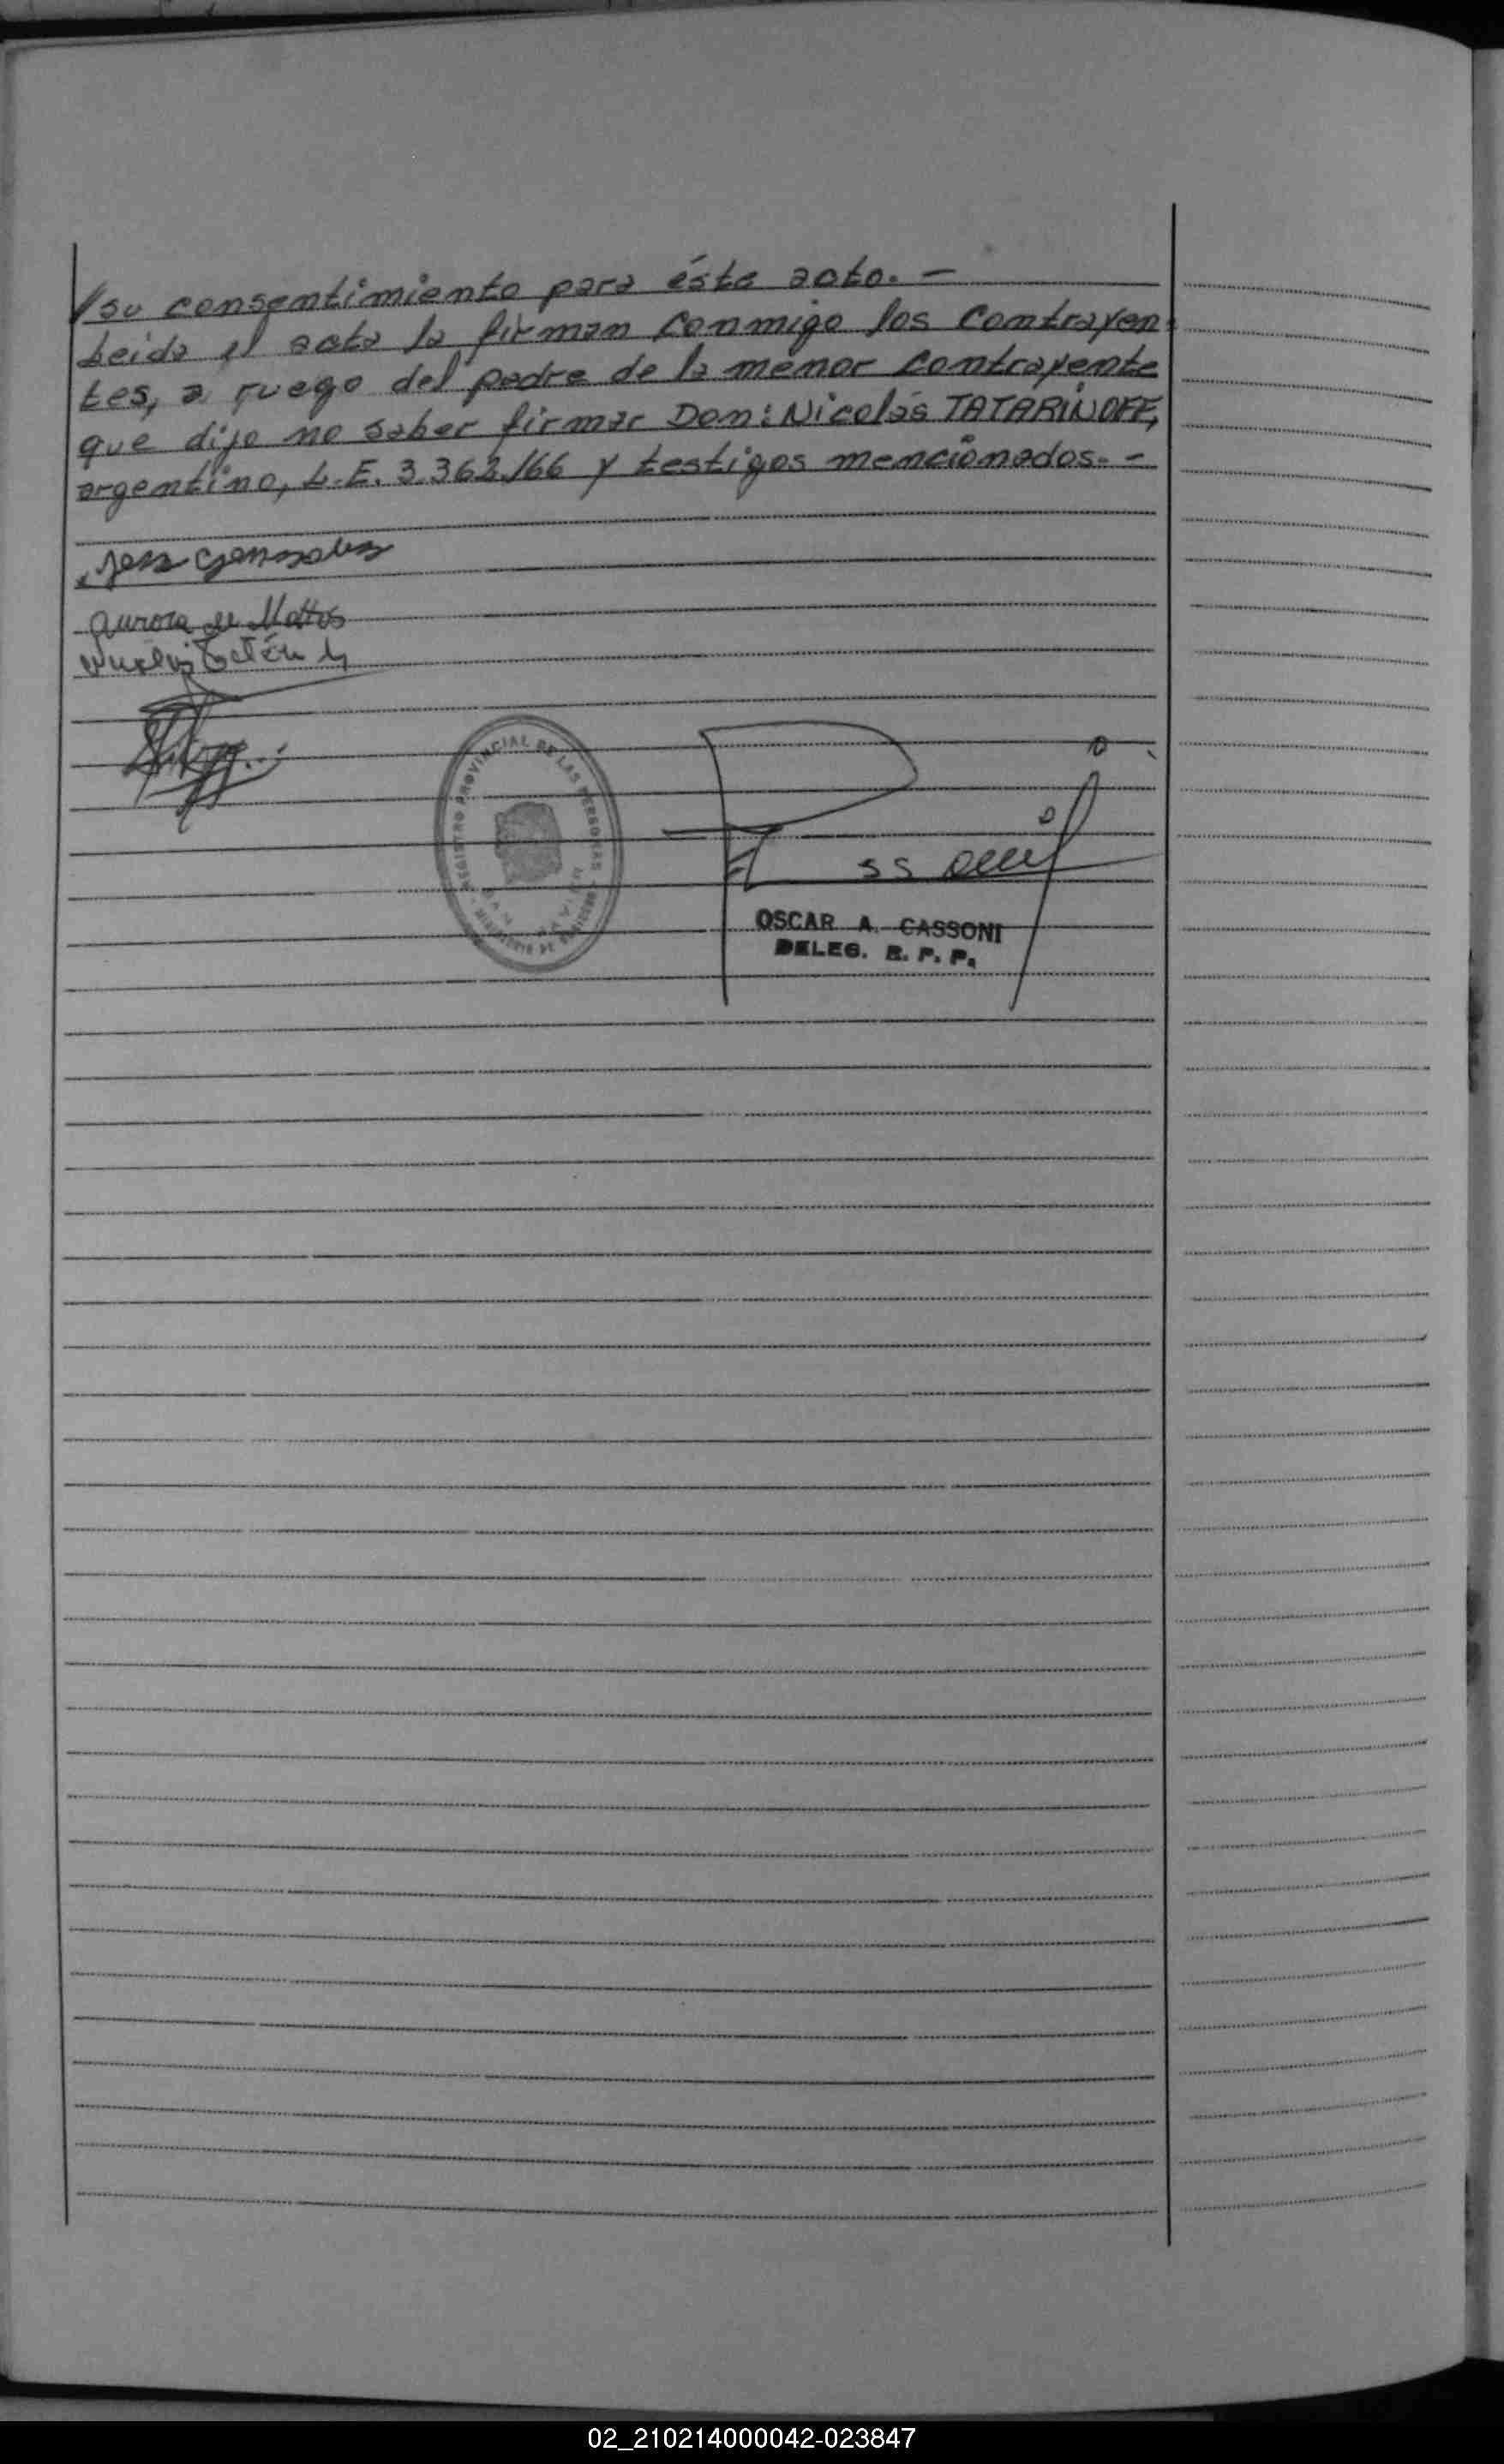 su consentimiento para éste acto. -
Leida el acta la firman conmigo los contrayen-
tes, a ruego del padre de la menor contrayente
que dijo no saber firmar Don: Nicolás TATARINOFF,
argentino, L.E. 3.362.166 y testigos mencionados. -
Aurora de Mattos
REGISTRO PROVINCIAL DE LAS PERSONAS
OSCAR A. CASSONI
DELEG. R. P. P.
02_210214000042-023847